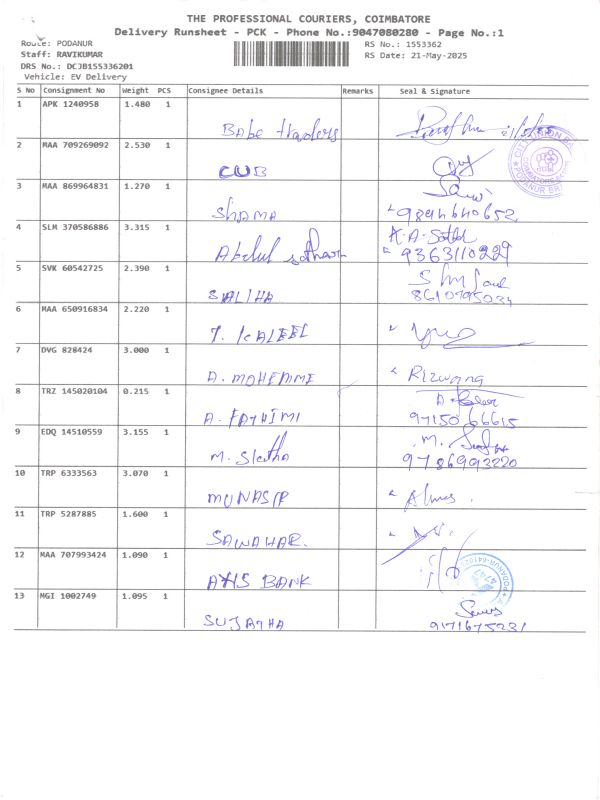 THE PROFESSIONAL COURIERS, COIMBATORE
Delivery Runsheet - PCK - Phone No.:9047080280 - Page No.:1
Route: PODANUR
RS No.: 1553362
Staff: RAVIKUMAR
RS Date: 21-May-2025
DRS No.: DCJB155336201
Vehicle: EV Delivery
S No Consignment No Weight PCS Consignee Details Remarks Seal & Signature
1 APK 1240958 1.480 1 Babe traders
2 MAA 709269092 2.530 1 CUB
CITY UNION BA
PODANUR BR
3 MAA 869964831 1.270 1 Shama 9894640652
4 SLM 370586886 3.315 1 Abdul K.A. 9363110229
5 SVK 60542725 2.390 1 SALIHA 8610795034
6 MAA 650916834 2.220 1 T. KALEEL
7 DVG 828424 3.000 1 A. MOHEMME Rizwana
8 TRZ 145020104 0.215 1 A. FATHIMI 97150 66615
9 EDQ 14510559 3.155 1 M. M. 9786993220
10 TRP 6333563 3.070 1 MUNASIR
11 TRP 5287885 1.600 1 SAWAHAR.
12 MAA 707993424 1.090 1 AXIS BANK
PODANUR
13 MGI 1002749 1.095 1 SUJATHA 9171675231